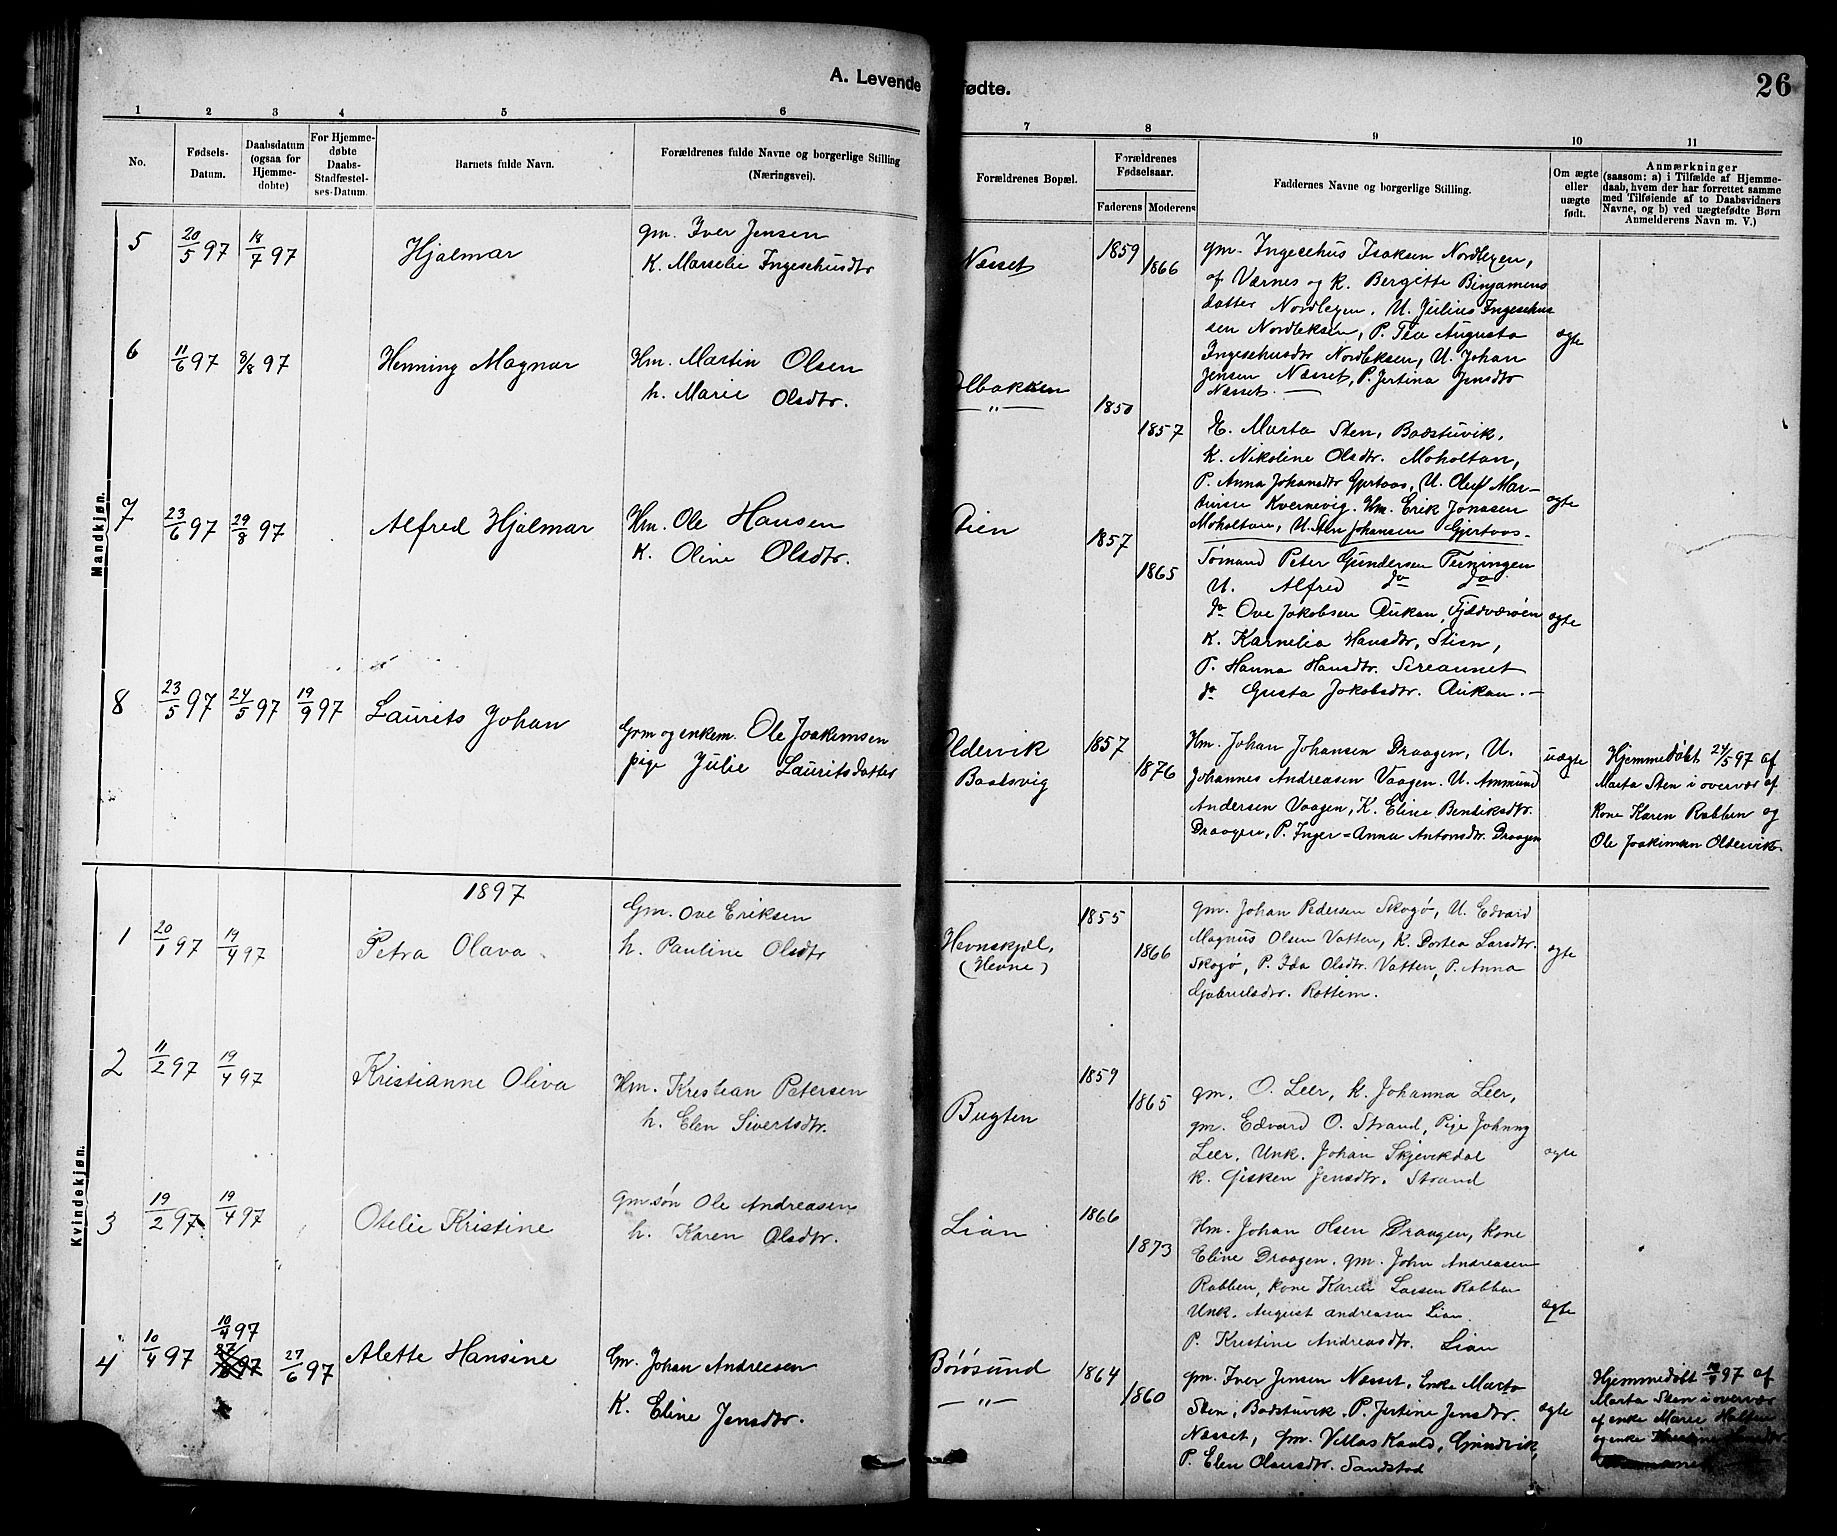 A. Levende fødte.
26
1 2 3 4 5 6 7 8 9 10 11
No.
Fødsels-
Datum.
Daabsdatum
(ogsaa for
Hjemme-
døbte)
For Hjemme-
døbte
Daabs-
Stadfæstel-
ses-Datum.
Barnets fulde Navn.
Forældrenes fulde Navne og borgerlige Stilling
(Næringsvei).
Forældrenes Bopæl.
Forældrenes
Fødselsaar.
Faderens Moderens
Faddernes Navne og borgerlige Stilling.
Om ægte
eller
uægte
født.
Anmærkninger
(saasom: a) i Tilfælde af Hjemme-
daab, hvem der har forrettet samme
med Tilføiende af to Daabsvidners
Navne, og b) ved uægtefødte Børn
Anmelderens Navn m. V.)
Mandkjøn.
5 20/5 97 18/7 97 Hjalmar
gm. Iver Jensen
K. Marselie Ingesehusdtr
Næsset
1859
1866
gm. Ingesehus Isaksen Nordlexen,
af Værnes og K. Bergitte Binjamens
datter Nordlexen, U. Julius Ingesehus
sen Nordleksen, P. Tea Augusta
Ingesehusdtr Nordleksen, U. Johan
Jensen Næsset, P. Jertina Jensdtr
Næsset.
ægte
6 11/6 97 8/8 97 Henning Magnar
Hm. Martin Olsen
h. Marie Olsdtr.
olbakken
— " —
1850
1857
E. Marta Sten, Badstuvik,
K. Nikoline Olsdtr. Moholtan,
P. Anna Johansdtr Gjertaas, U. Oluf Mar-
tinsen Kvernevig. Hm. Erik Jonassen
Moholtan, U. Sten Johansen Gjertaas.
ægte
7 23/6 97 29/8 97 Alfred Hjalmar
Hm. Ole Hansen
K. Oline Olsdtr.
tien
1857
1865
Sømand Peter Gundersen Teiningen
U. Alfred do do
do Ove Jakobsen Aukan, Fjeldværøen
K. Karnelia Hansdtr, Stien,
P. Hanna Hansdtr.
do Gusta Jakobsdtr. Aukan. —
ægte
8 23/5 97 24/5 97 19/9 97 Laurits Johan
Gm og enkem. Ole Joakimsen
pige Julie Lauritsdatter
Oldervik
Baatsvig
1857
1876
Hm. Johan Johansen Draagen, U.
Johannes Andreasen Vaagen. U. Ammund
Andersen Vaagen, K. Eline Bendiksdtr.
Draagen, P. Inger-Anna Antonsdtr. Draagen
uægte
Hjemmedøbt 24/5 97 af
Marta Sten i overvær af
kone Karen Rabben og
Ole Joakimsen Oldervik.
Kvindekjøn.
1897
1 20/1 97 19/4 97 Petra Olava
Gm. Ove Eriksen
h. Pauline Olsdtr
Hevnskjel,
(Hevne)
1855
1866
gm. Johan Pedersen Skogø, U. Edvard
Magnus Olsen Vatten, K. Dortea Larsdtr.
Skogø, P. Ida Olsdtr. Vatten, P. Anna
Gabrielsdtr. Rottem.
ægte
2 11/2 97 19/4 97 Kristianne Oliva
Hm. Kristian Petersen
h. Elen Sivertsdtr.
Bugten
1859
1865
gm. O. Leer, K. Johanna Leer,
gm. Edvard O. Strand, Pige Johnny
Leer, Unk. Johan Skjevikdal
K. Gisken Jensdtr. Strand
ægte
3 19/2 97 19/4 97 Otelie Kristine
gm.søn Ole Andreasen
h. Karen Olsdtr.
Lian
1866
1873
Hm. Johan Olsen Draagen, kone
Eline Draagen, gm. John Andreasen
Rabben, kone Karen Larsen Rabben
Unk. August Andreasen Lian.
P. Kristine Andreasdtr. Lian
ægte
4 10/4 97 10/4 97 27/6 97 Alette Hansine
Gm. Johan Andreasen
K. Eline Jensdtr.
Børøsund
— " —
1864
1860
gm. Iver Jensen Næsset, Enke Marta
Sten, Badstuvik, P. Jertine Jensdtr.
Næsset, gm. Villas Kaald, Grindvik,
P. Elen Olausdtr. Sandstad
ægte
Hjemmedøbt 10/4 97 af
Marta Sten i overvær
af enke Marie Holten
og enke